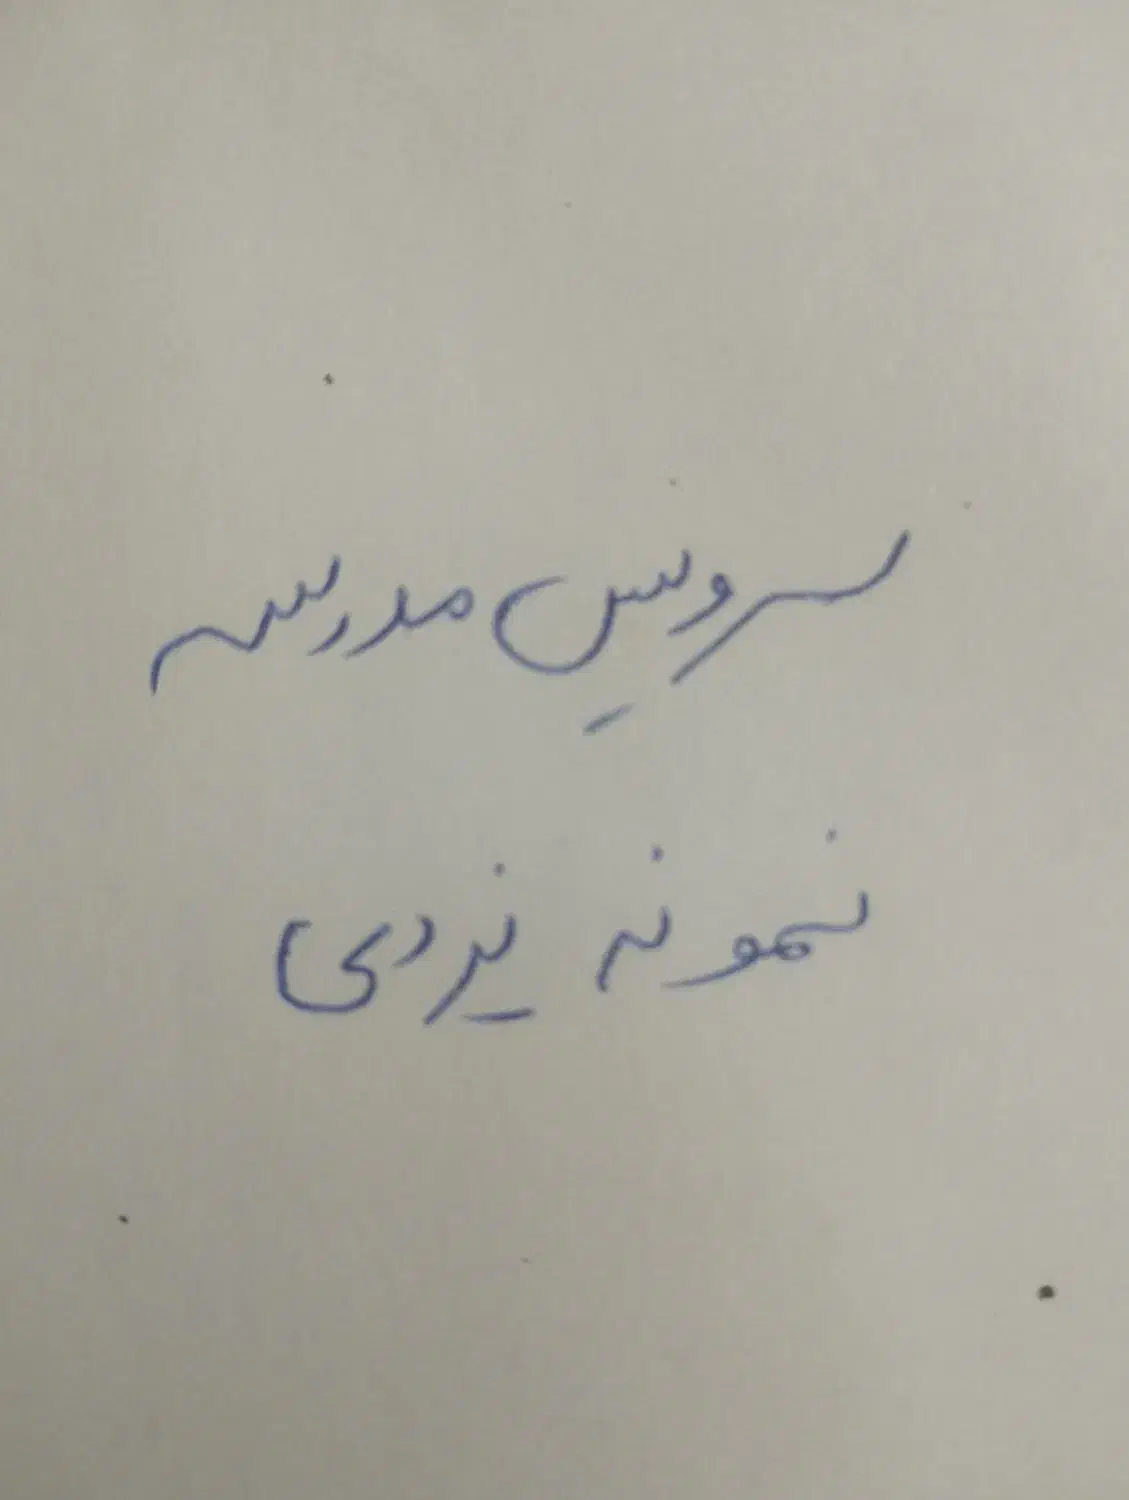 سرویس مدرسه
نمونه یزدی